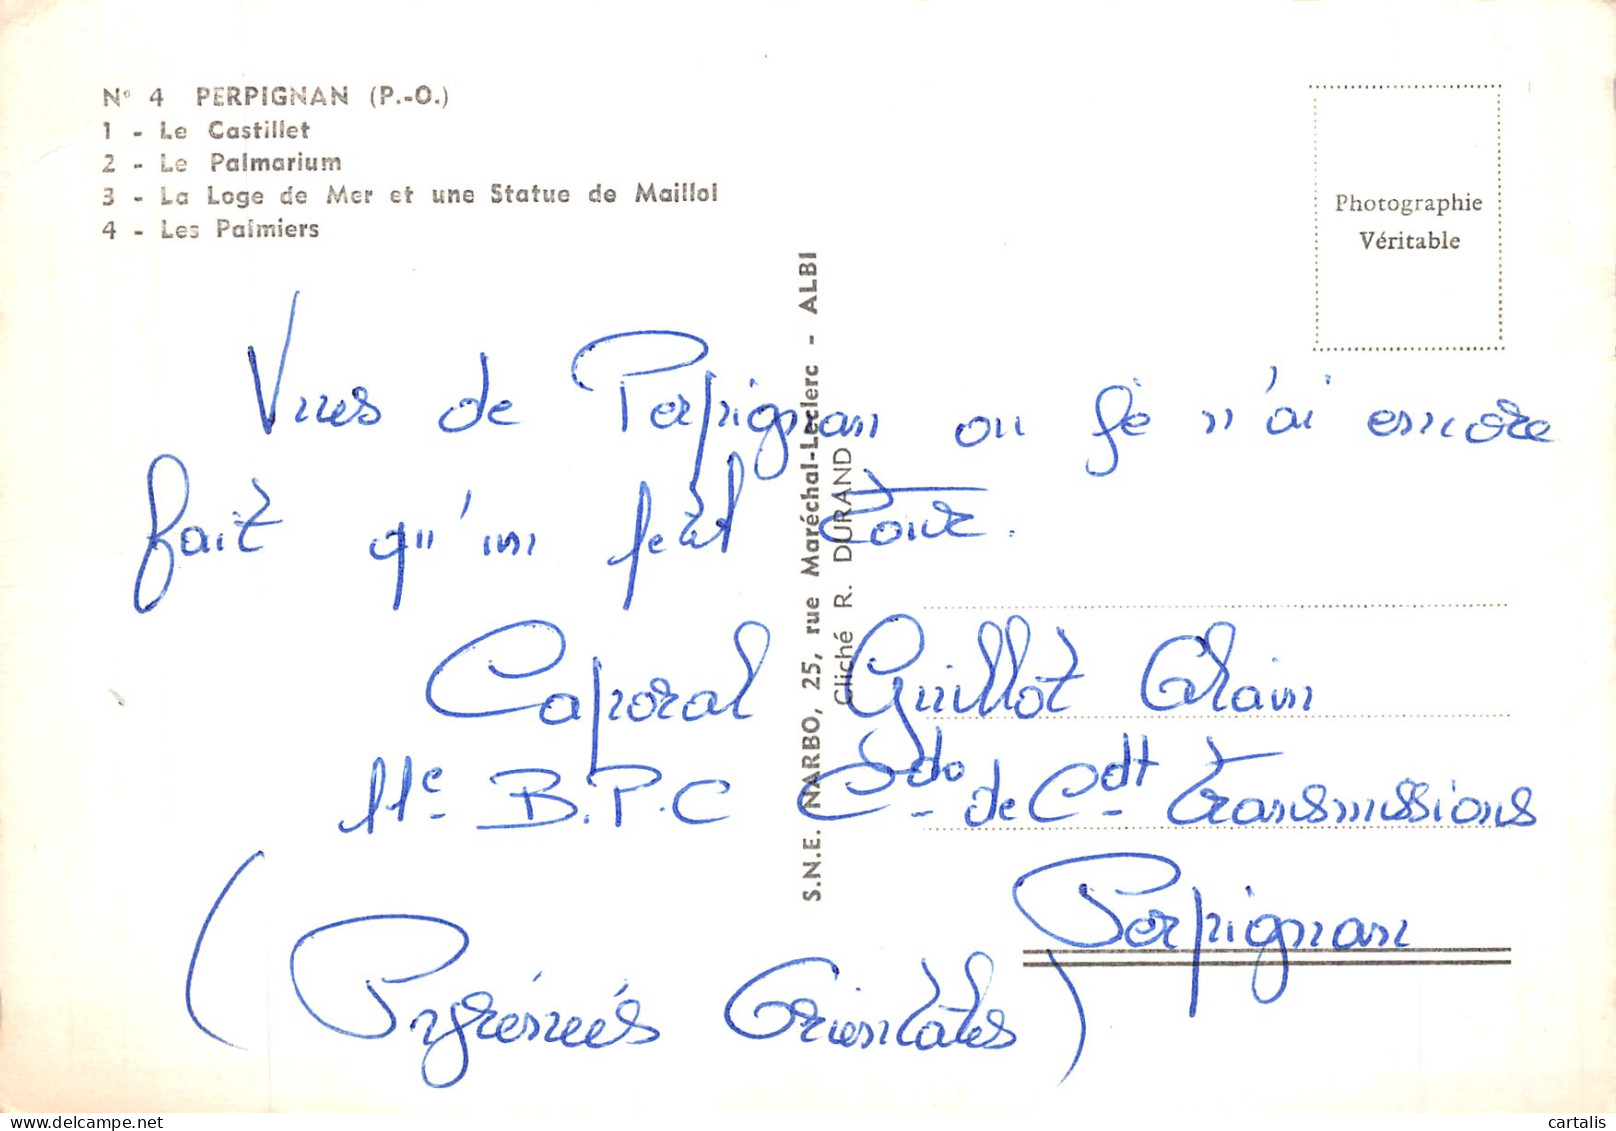 N° 4 PERPIGNAN (P.-O.)
1 - Le Castillet
2 - Le Palmarium
3 - La Loge de Mer et une Statue de Maillol
4 - Les Palmiers
Photographie
Véritable
S.N.E. NARBO, 25, rue Maréchal-Leclerc - ALBI
Cliché R. DURAND
Vues de Perpignan ou je n'ai encore
fait qu'un petit tour.
Caporal Guillot Alain
11e B.P.C Cdo de Cdt Transmissions
Perpignan
(Pyrénées Orientales)
www.delcampe.net
cartalis